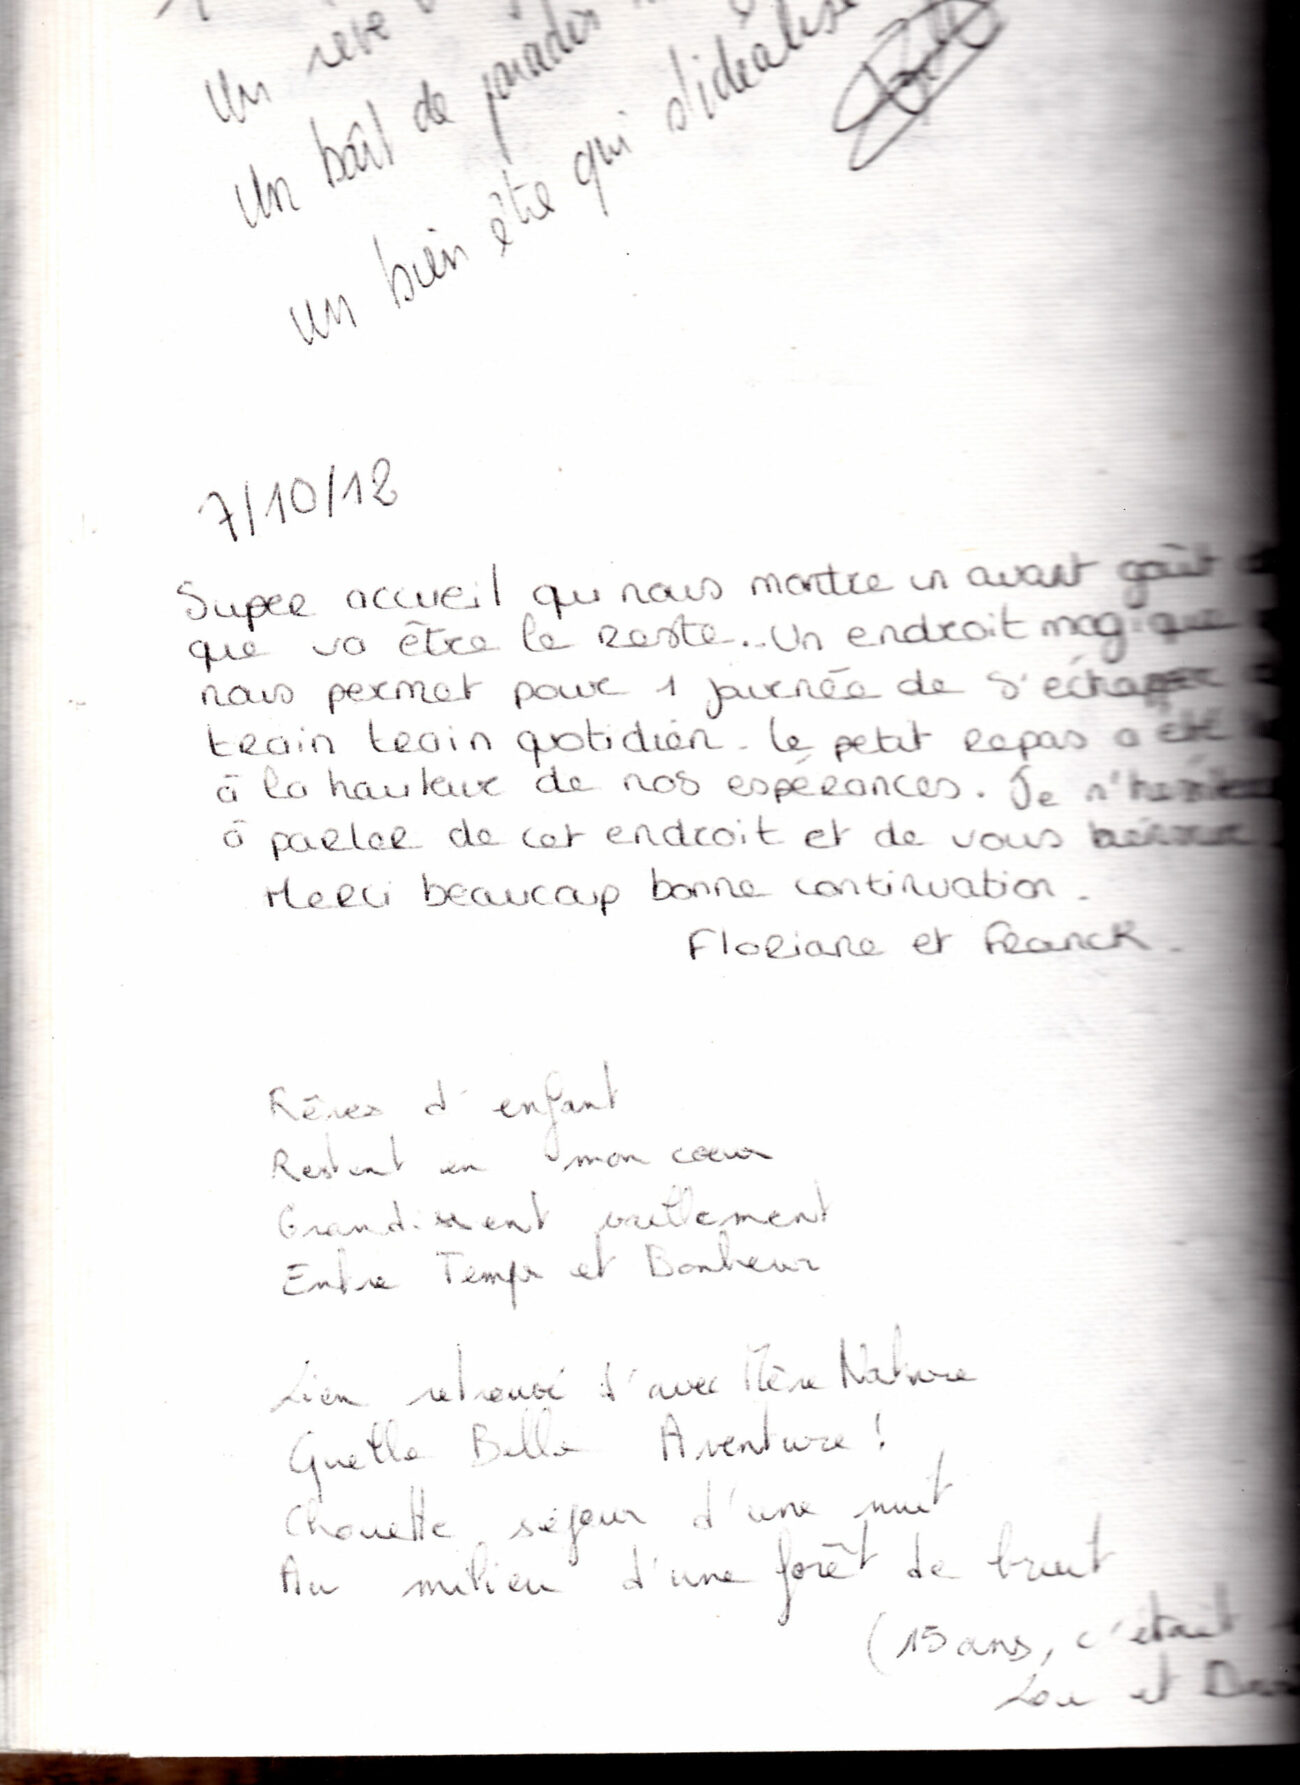 Un reve
Un bâit de paradis
un bien être qui s'idéalise
7/10/12
Super accueil qui nous montre un avant goût
que va être le reste... Un endroit magique
nous permet pour 1 journée de s'échapper
train train quotidien. Le petit repas a été
à la hauteur de nos espérances. Je n'hésiterai
à parler de cet endroit et de vous
Merci beaucoup bonne continuation.
Floriane et Franck.
Rêves d'enfant
Restent en mon coeur
Grandissent
Entre Temps et Bonheur
Lien retrouvé d'avec Mère Nature
Quelle Belle Aventure !
Chouette séjour d'une nuit
Au milieu d'une forêt de bruit
(15 ans, c'était
Lou et